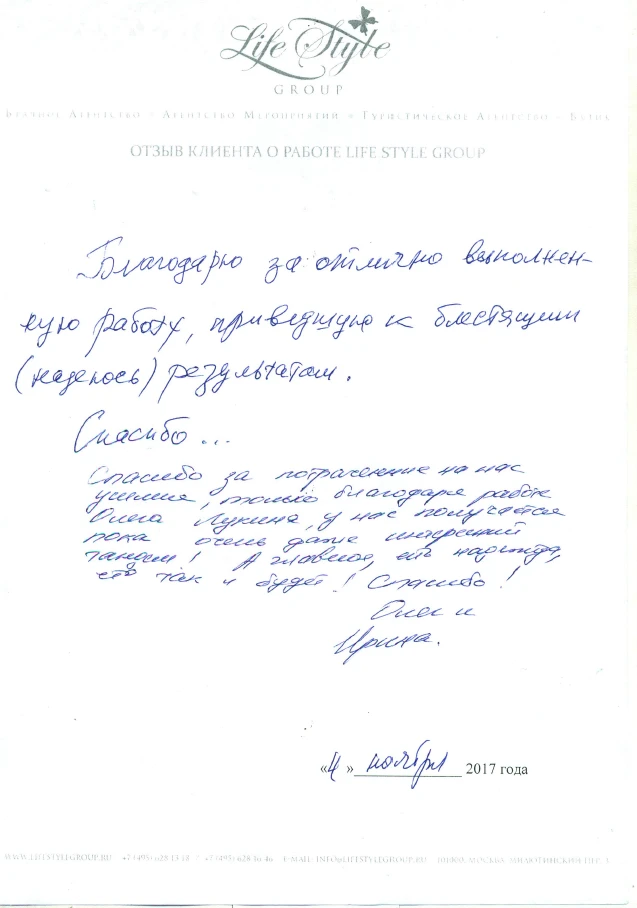 Life Style
GROUP
Брачное Агентство • Агентство Мероприятий • Туристическое Агентство • Бутик
ОТЗЫВ КЛИЕНТА О РАБОТЕ LIFE STYLE GROUP
Благодарю за отлично выполнен-
ную работу, приведшую к блестящим
(надеюсь) результатам.
Спасибо...
Спасибо за потраченные на нас
усилия, только благодаря работе
Олега Лукина, у нас получается
пока очень даже интересный
тандем! А главное, есть надежда,
что так и будет! Спасибо!
Олег и
Ирина.
«4» ноября 2017 года
WWW.LIFESTYLEGROUP.RU +7 (495) 628 13 18 / +7 (495) 628 36 46 E-MAIL: INFO@LIFESTYLEGROUP.RU МОСКВА, МИЛЮТИНСКИЙ ПЕР.